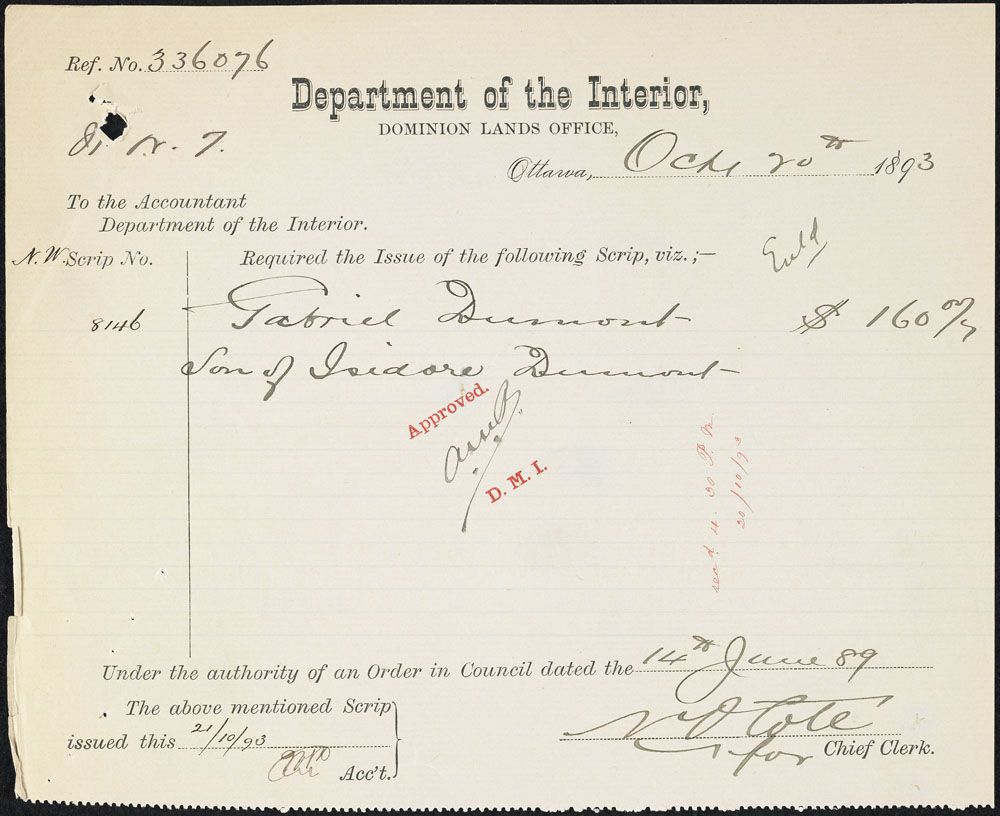 Ref. No. 336076
Department of the Interior,
DOMINION LANDS OFFICE,
N. W. T.
Ottawa, Oct 20th 1893
To the Accountant
Department of the Interior.
N.W. Scrip No.
Required the Issue of the following Scrip, viz.;—
8146
Gabriel Dumont $ 160
Son of Isidore Dumont
Approved.
D. M. I.
rec'd 4.30 P.M
20/10/93
Under the authority of an Order in Council dated the 14th June 89
The above mentioned Scrip
issued this 21/10/93
Acc't.
N O Coté
for Chief Clerk.